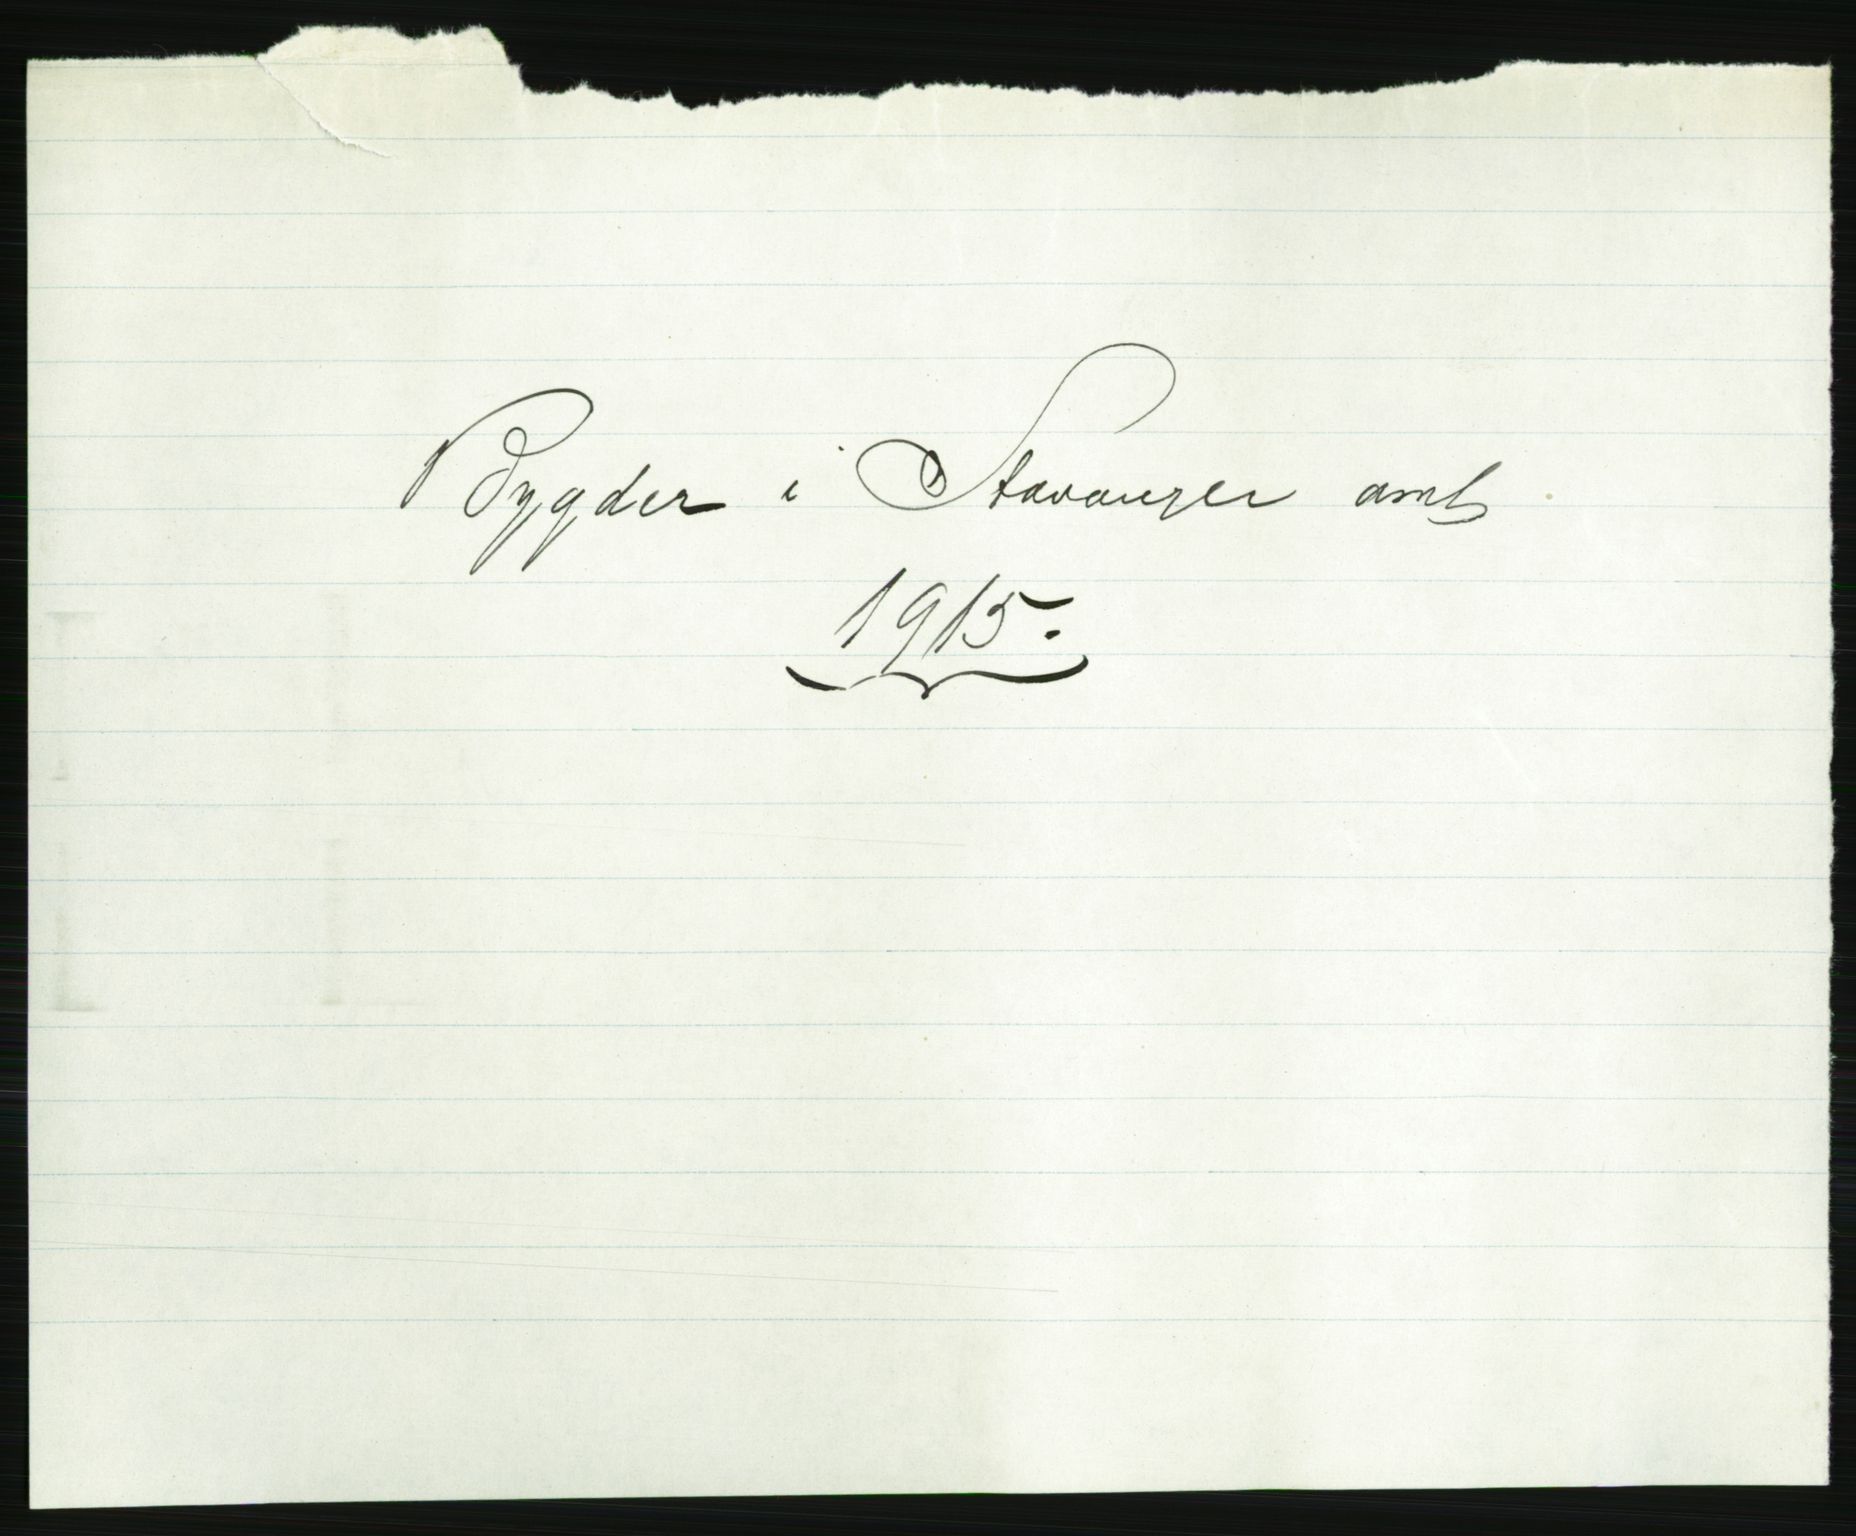 Bygder i Stavanger amt
1915.